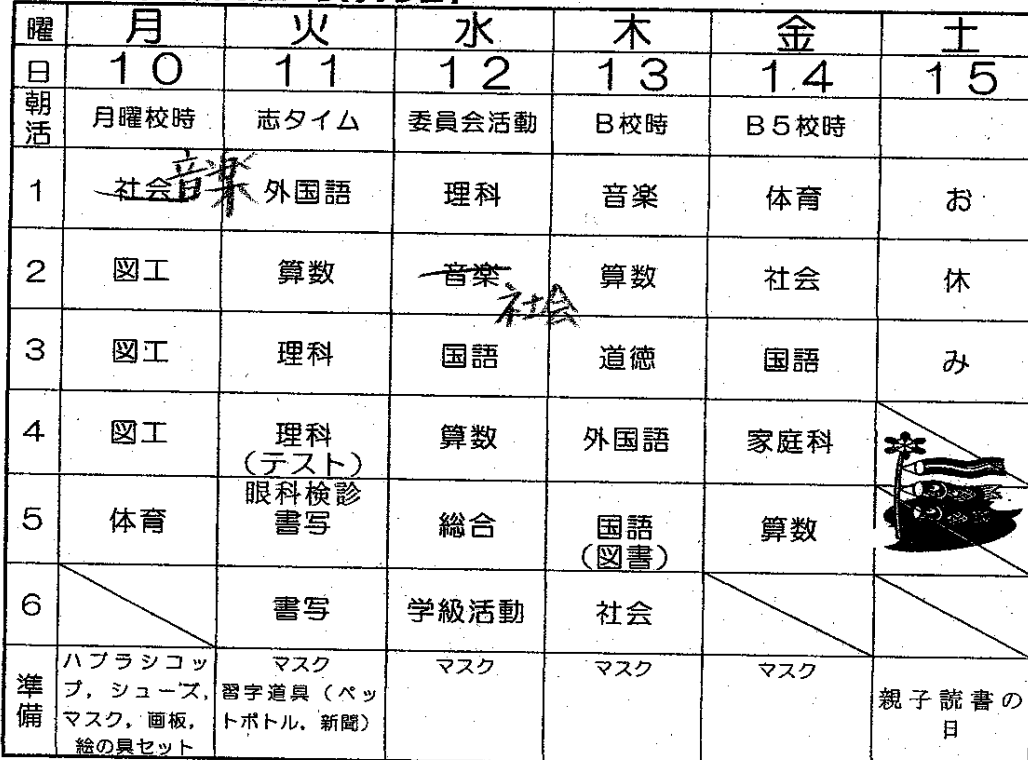 曜 月 火 水 木 金 土
日 10 11 12 13 14 15
朝活 月曜校時 志タイム 委員会活動 B校時 B5校時
1 社会 音楽 外国語 理科 音楽 体育 お
2 図工 算数 音楽 社会 算数 社会 休
3 図工 理科 国語 道徳 国語 み
4 図工 理科 算数 外国語 家庭科
(テスト)
眼科検診
5 体育 書写 総合 国語 算数
(図書)
6 書写 学級活動 社会
準備
ハブラシコッ
プ,シューズ,
マスク,画板,
絵の具セット
マスク
習字道具(ペッ
トボトル,新聞)
マスク
マスク
マスク
親子読書の
日